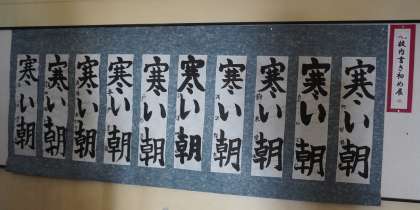 校内書き初め展
寒い朝
寒い朝
寒い朝
寒い朝
寒い朝
寒い朝
寒い朝
寒い朝
寒い朝
寒い朝